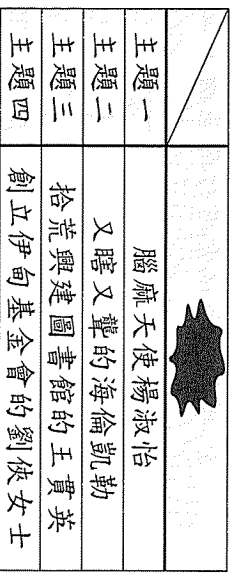 主題一 腦麻天使楊淑怡
主題二 又瞎又聾的海倫凱勒
主題三 拾荒興建圖書館的王貫英
主題四 創立伊甸基金會的劉俠女士